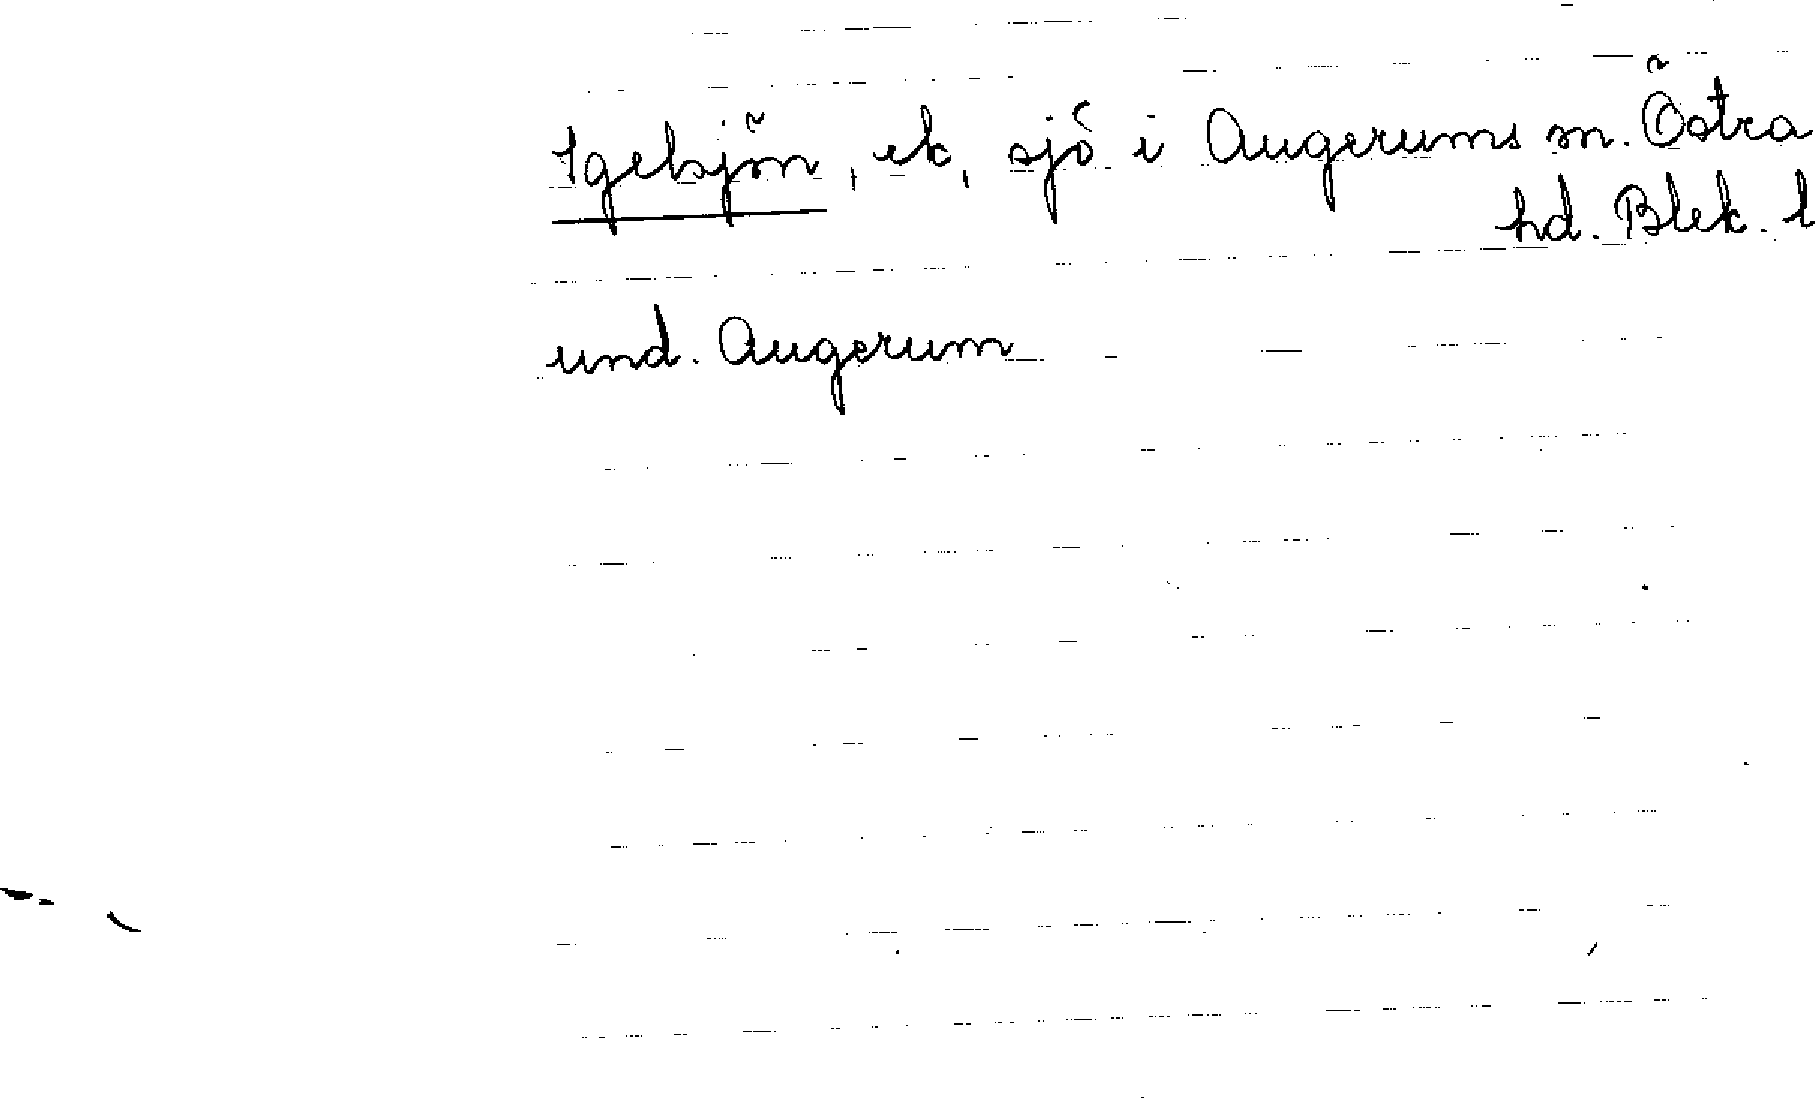 Igelsjön, ek, sjö i Augerums sn. Östra
hd. Blek. l
und. Augerum